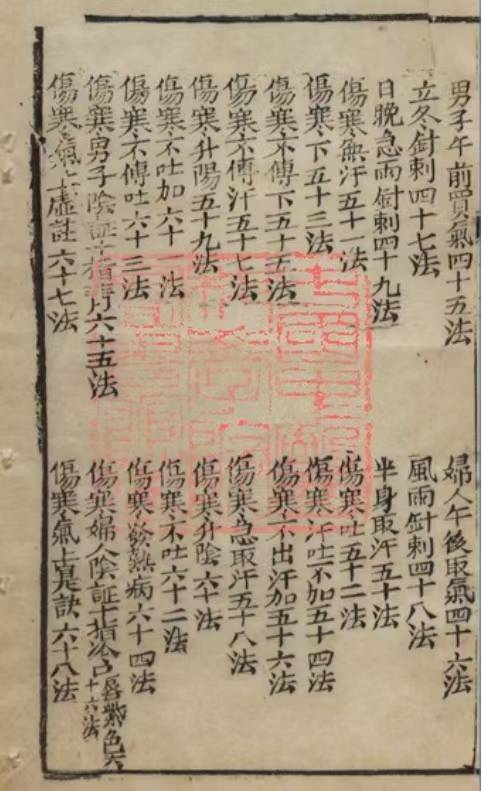 男子午前買氣四十五法
婦人午後取氣四十六法
立冬針刺四十七法
風雨針刺四十八法
日晚急雨針刺四十九法
半身取汗五十法
傷寒無汗五十一法
傷寒吐五十二法
傷寒下五十三法
傷寒汗吐不加五十四法
傷寒不傳下五十五法
傷寒不出汗加五十六法
傷寒不傳汗五十七法
傷寒急取汗五十八法
傷寒升陽五十九法
傷寒升陰六十法
傷寒不吐加六十一法
傷寒不吐六十二法
傷寒不傳吐六十三法
傷寒發熱病六十四法
傷寒男子陰証十指青六十五法
傷寒婦人陰証十指冷唇紫色六十六法
傷寒氣上虛註六十七法
傷寒氣上訣六十八法